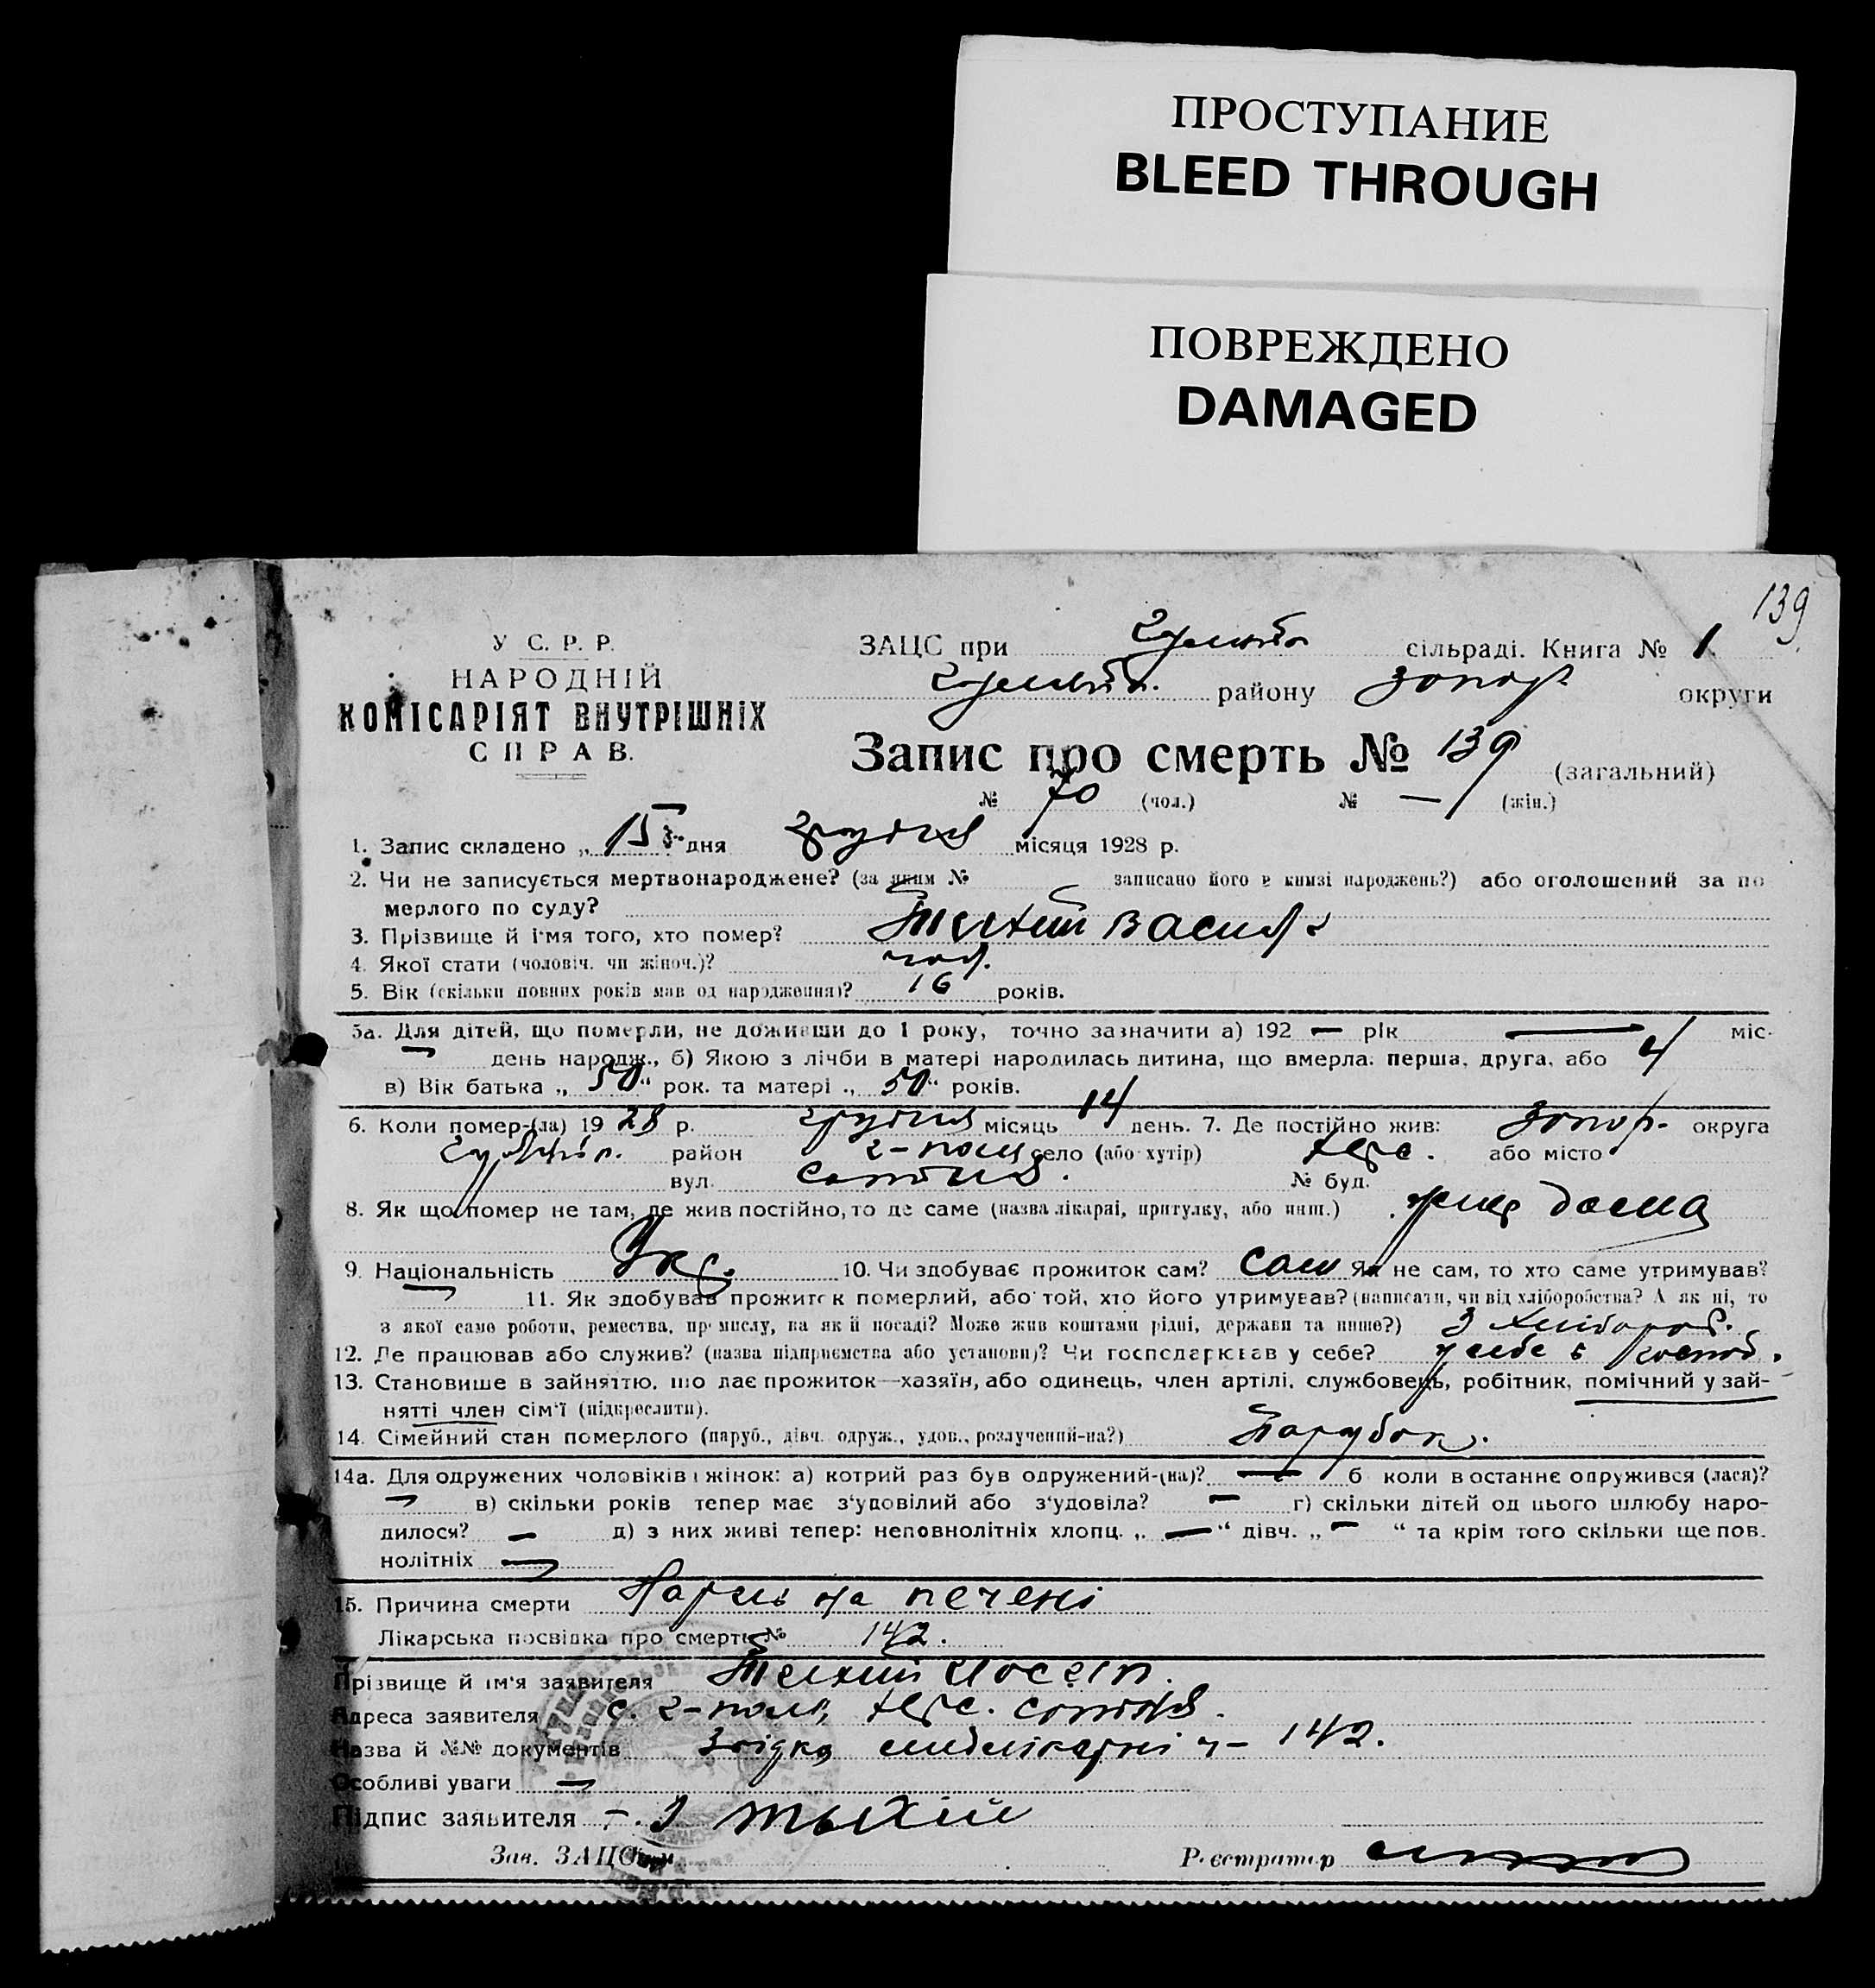 ПРОСТУПАНИЕ
BLEED THROUGH
ПОВРЕЖДЕНО
DAMAGED
139
У С. Р. Р.
НАРОДНІЙ
КОМІСАРІЯТ ВНУТРІШНІХ
СПРАВ.
ЗАЦС при сільраді. Книга № 1
району Запор. округи
Запис про смерть № 139 (загальний)
№ 70 (чол.) № — (жін.)
1. Запис складено „ 15 " дня грудня місяця 1928 р.
2. Чи не записується мертвонароджене? (за яким № записано його в книзі народжень?) або оголошений за по
мерлого по суду?
3. Прізвище й ім'я того, хто помер? Тихий Василь
4. Якої стати (чоловіч. чи жіноч.)? чол.
5. Вік (скільки повних років мав од народження)? 16 років.
5а. Для дітей, що померли, не доживши до 1 року, точно зазначити а) 192 — рік — міс-
— день народж., б) Якою з лічби в матері народилась дитина, що вмерла: перша, друга, або 4
в) Вік батька „ 50 " рок. та матері „ 50 " років.
6. Коли помер-(ла) 19 28 р. грудня місяць 14 день. 7. Де постійно жив: Запор. округа
район Г-поле село (або хутір) або місто
вул. сотня. № буд.
8. Як що помер не там, де жив постійно, то де саме (назва лікарні, притулку, або инш.) дома
9. Національність Укр. 10. Чи здобуває прожиток сам? сам Як не сам, то хто саме утримував?
— 11. Як здобував прожиток померлий, або той, хто його утримував? (написати, чи від хліборобства? А як ні, то
з якої саме роботи, ремества, промислу, на якій посаді? Може жив коштами рідні, держави та инше?) З хлібороб.
12. Де працював або служив? (назва підприємства або установи)? Чи господарював у себе? у себе в господ.
13. Становище в зайняттю, що дає прожиток—хазяїн, або одинець, член артілі, службовець, робітник, помічний у зай-
нятті член сім'ї (підкреслити).
14. Сімейний стан померлого (паруб., дівч. одруж., удов., розлучений-на?) Парубок.
14а. Для одружених чоловіків і жінок: а) котрий раз був одружений-(на)? — б коли в останнє одружився (лася)?
— в) скільки років тепер має з'удовілий або з'удовіла? — г) скільки дітей од цього шлюбу наро-
дилося? — д) з них живі тепер: неповнолітніх хлопц. „ — " дівч. „ — " та крім того скільки ще пов.
нолітніх —
15. Причина смерти на печені
Лікарська посвідка про смерть № 142.
Прізвище й ім'я заявителя Тихий Йосип.
Адреса заявителя с. Г-поле, сотня.
Назва й №№ документів 142.
Особливі уваги —
Підпис заявителя Тыхій
Зав. ЗАЦСом Реєстратор